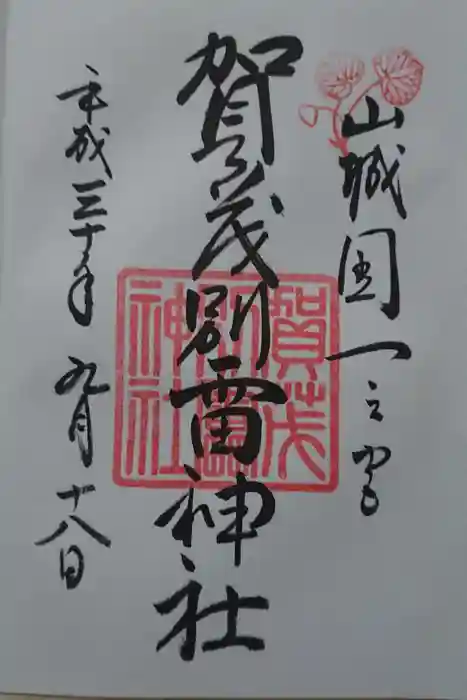 山城国一之宮
賀茂別雷神社
平成三十年九月十八日
賀茂
別雷
神社